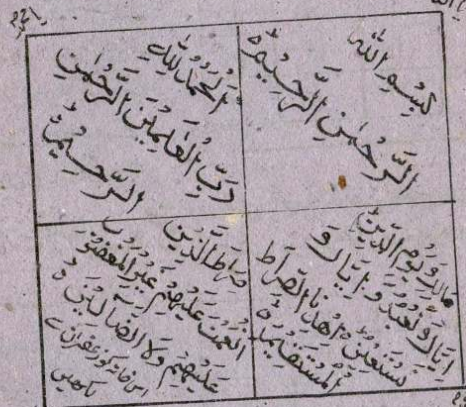 بِسْمِ اللّٰهِ
الرَّحْمٰنِ الرَّحِيْمِ ۝
اَلْحَمْدُ لِلّٰهِ
رَبِّ الْعٰلَمِيْنَ الرَّحْمٰنِ
الرَّحِيْمِ
مٰلِكِ يَوْمِ الدِّيْنِ
اِيَّاكَ نَعْبُدُ وَ اِيَّاكَ
نَسْتَعِيْنُ اِهْدِنَا الصِّرَاطَ
الْمُسْتَقِيْمَ
صِرَاطَ الَّذِيْنَ
اَنْعَمْتَ عَلَيْهِمْ غَيْرِ الْمَغْضُوْبِ
عَلَيْهِمْ وَلَا الضَّآلِّيْنَ ۝
اس خانہ کو زعفران سے
لکھیں